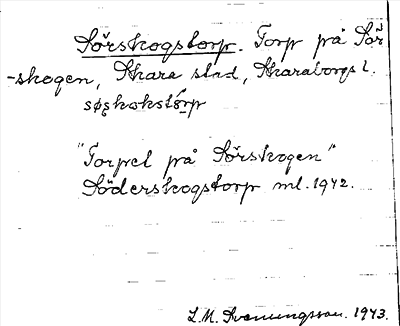 Sörskogstorp. Torp på Sör
-skogen, Skara stad, Skaraborgs l.
"Torpet på Sörskogen"
Söderskogstorp ml. 1942.
L.M. Svenungsson. 1943.